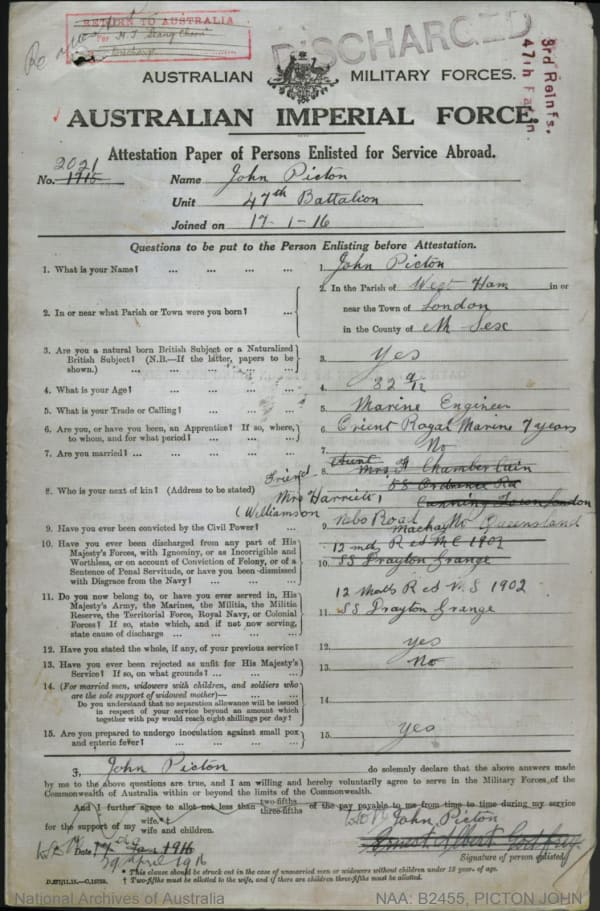 RETURN TO AUSTRALIA
Per H.T.
DISCHARGED
3rd Reinfs.
47th Battn.
AUSTRALIAN MILITARY FORCES.
AUSTRALIAN IMPERIAL FORCE.
Attestation Paper of Persons Enlisted for Service Abroad.
2021
No. 1715 Name John Picton
Unit 47th Battalion
Joined on 17-1-16
Questions to be put to the Person Enlisting before Attestation.
1. What is your Name? ... ... ... ... 1. John Picton
2. In or near what Parish or Town were you born? ... ... 2. In the Parish of West Ham in or
near the Town of London
in the County of
3. Are you a natural born British Subject or a Naturalized
British Subject? (N.B.—If the latter, papers to be
shown.) ... ... ... ... ... 3. Yes
4. What is your Age? ... ... ... ... 4. 32 9/12
5. What is your Trade or Calling? ... ... ... 5. Marine Engineer
6. Are you, or have you been, an Apprentice? If so, where,
to whom, and for what period? ... ... ... 6. Orient Royal Marine 7 years
7. Are you married? ... ... ... ... 7. No
8. Who is your next of kin? (Address to be stated) 8. Aunt Mrs A Chamberlain
58 Ordnance Rd
Canning Town London
Friend
Mrs Harriets
(Williamson
Nebo Road
Mackay Queensland
9. Have you ever been convicted by the Civil Power? ... 9. No
10. Have you ever been discharged from any part of His
Majesty's Forces, with Ignominy, or as Incorrigible and
Worthless, or on account of Conviction of Felony, or of a
Sentence of Penal Servitude, or have you been dismissed
with Disgrace from the Navy? ... ... ... 10. 12 mths 1902
SS Drayton Grange
11. Do you now belong to, or have you ever served in, His
Majesty's Army, the Marines, the Militia, the Militia
Reserve, the Territorial Force, Royal Navy, or Colonial
Forces? If so, state which, and if not now serving,
state cause of discharge ... ... ... 11. 12 Mths 1902
SS Drayton Grange
12. Have you stated the whole, if any, of your previous service? 12. yes
13. Have you ever been rejected as unfit for His Majesty's
Service? If so, on what grounds? ... ... ... 13. No
14. (For married men, widowers with children, and soldiers who
are the sole support of widowed mother)—
Do you understand that no separation allowance will be issued
in respect of your service beyond an amount which
together with pay would reach eight shillings per day? 14.
15. Are you prepared to undergo inoculation against small pox
and enteric fever? ... ... ... ... 15. yes
I, John Picton do solemnly declare that the above answers made
by me to the above questions are true, and I am willing and hereby voluntarily agree to serve in the Military Forces of the
Commonwealth of Australia within or beyond the limits of the Commonwealth.
And I further agree to allot not less than two-fifths three-fifths of the pay payable to me from time to time during my service
for the support of my wife.* wife and children.
John Picton
Date 17th Jan 1916
29 April 1916
Signature of person enlisted.
* This clause should be struck out in the case of unmarried men or widowers without children under 18 years of age.
† Two-fifths must be allotted to the wife, and if there are children three-fifths must be allotted.
National Archives of Australia NAA: B2455, PICTON JOHN